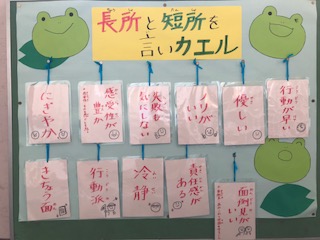 長所と短所を
言いカエル
行動が早い
優しい
ノリが
いい
失敗も
気にしない
感受性が
豊か
にぎやか
面倒見が
いい
責任感が
ある
冷静
行動派
きちょう面